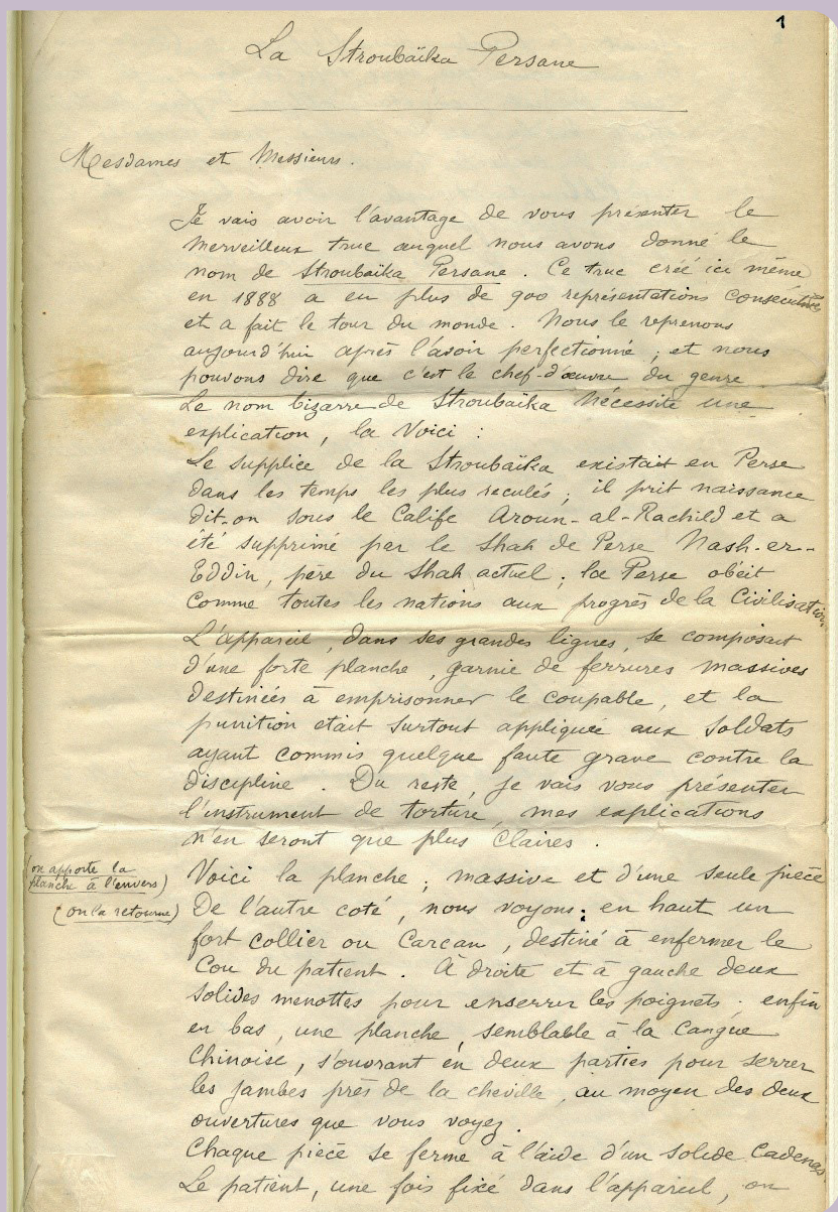 1
La Stroubaïka Persane
Mesdames et Messieurs.
Je vais avoir l'avantage de vous présenter le
merveilleux truc auquel nous avons donné le
nom de Stroubaïka Persane. Ce truc créé ici même
en 1888 a eu plus de 900 représentations consécutives
et a fait le tour du monde. Nous le reprenons
aujourd'hui après l'avoir perfectionné, et nous
pouvons dire que c'est le chef-d'œuvre du genre.
Le nom bizarre de Stroubaïka nécessite une
explication, la voici :
Le supplice de la Stroubaïka existait en Perse
dans les temps les plus reculés ; il prit naissance
dit-on sous le Calife Aroun-al-Rachild et a
été supprimé par le Shah de Perse Nash-er-
Eddin, père du Shah actuel ; la Perse obéit
comme toutes les nations aux progrès de la Civilisation
L'appareil, dans ses grandes lignes, se composait
d'une forte planche, garnie de ferrures massives
destinées à emprisonner le coupable, et la
punition etait surtout appliquée aux soldats
ayant commis quelque faute grave contre la
discipline. Du reste, je vais vous présenter
l'instrument de torture, mes explications
n'en seront que plus claires.
(on apporte la
planche à l'envers)
Voici la planche ; massive et d'une seule pièce
(on la retourne)
De l'autre coté, nous voyons : en haut un
fort collier ou Carcan, destiné à enfermer le
Cou du patient. À droite et à gauche deux
solides menottes pour enserrer les poignets ; enfin
en bas, une planche, semblable à la Cangue
Chinoise, s'ouvrant en deux parties pour serrer
les jambes près de la cheville, au moyen des deux
ouvertures que vous voyez.
Chaque pièce se ferme à l'aide d'un solide Cadenas.
Le patient, une fois fixé dans l'appareil, on